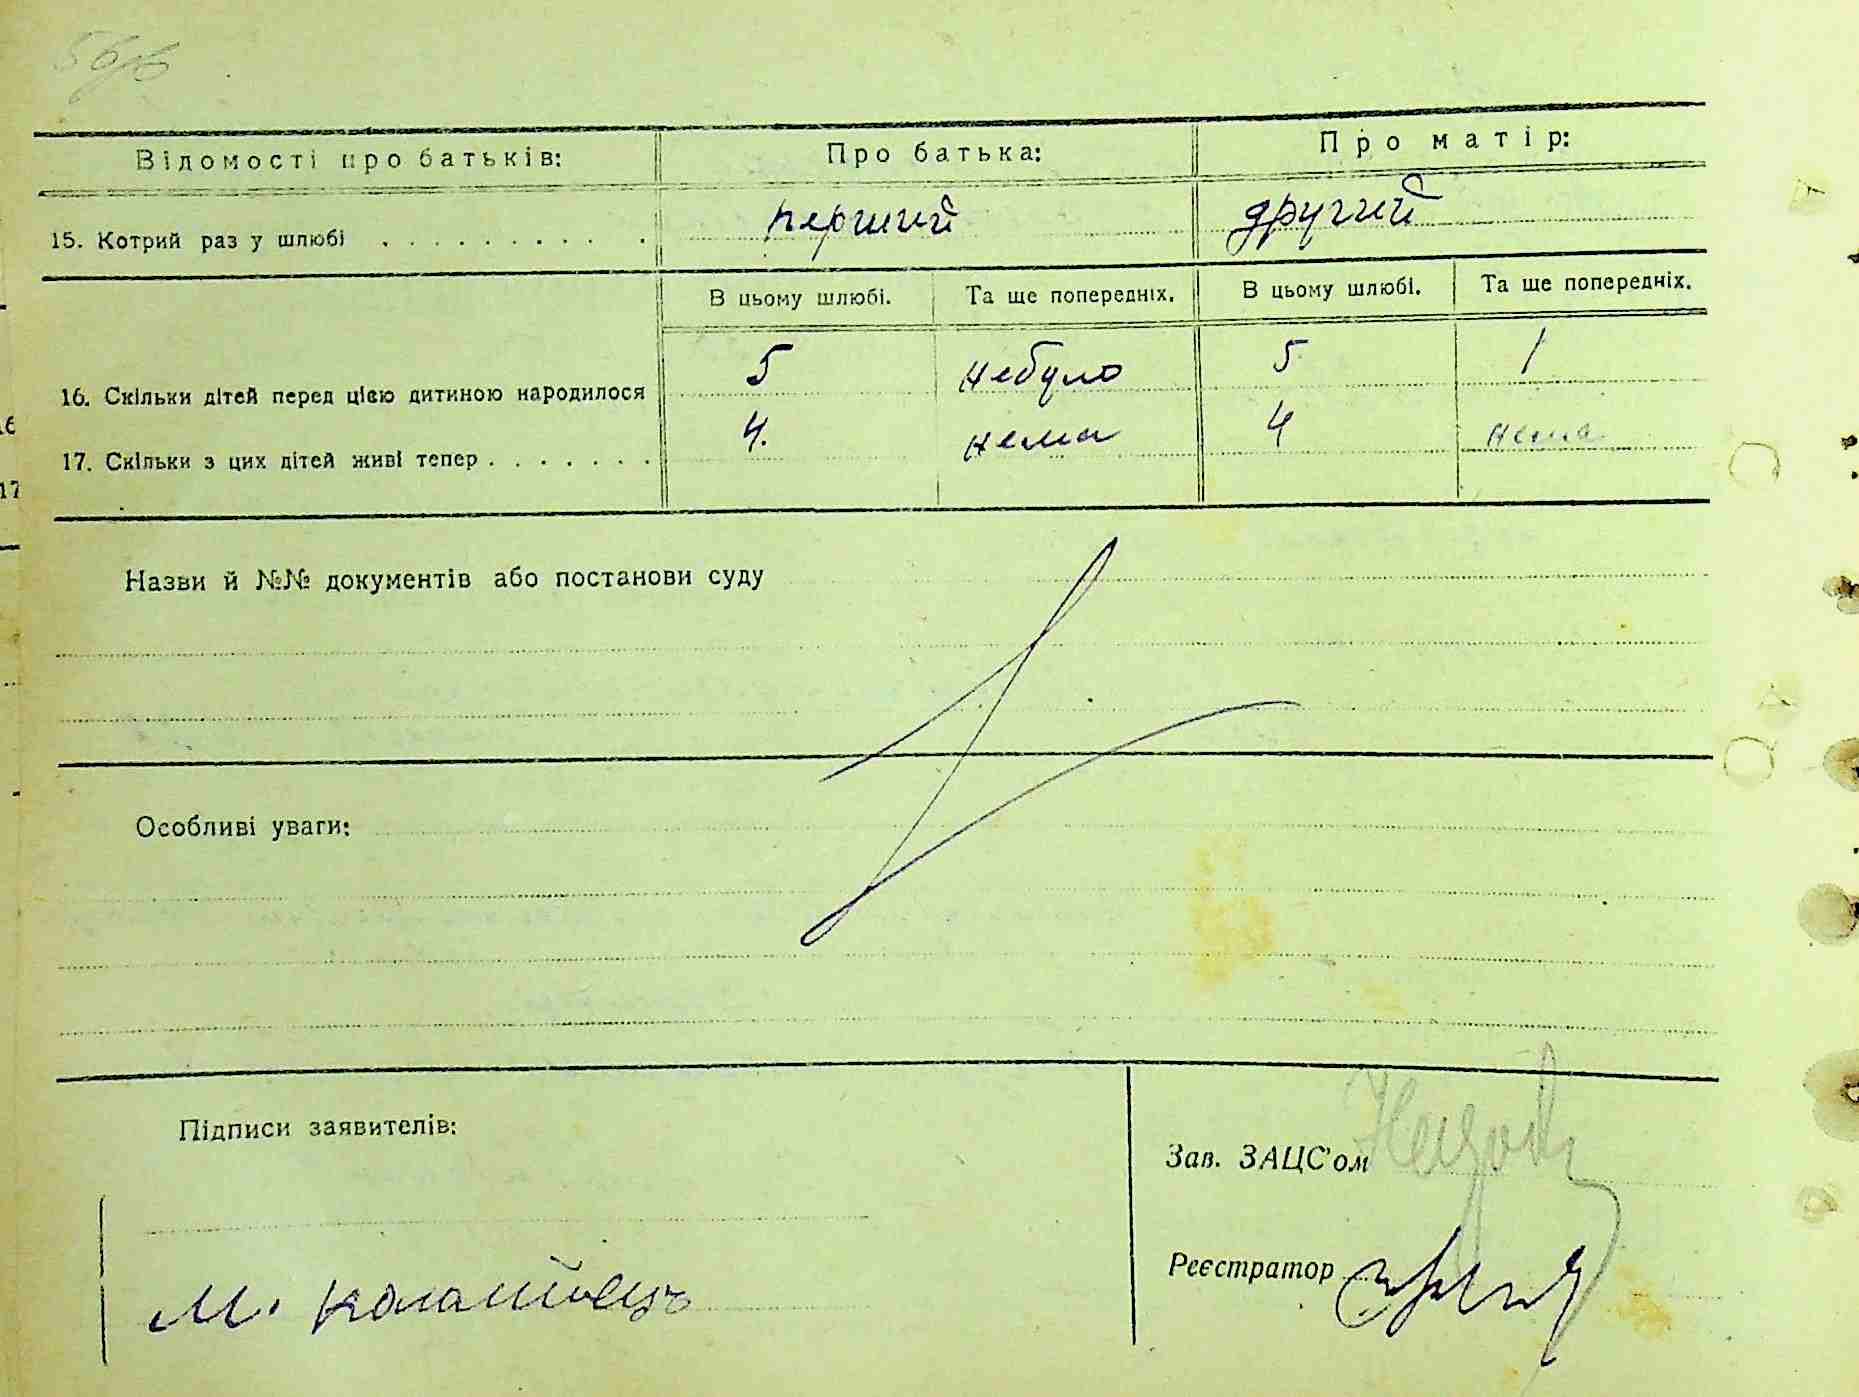 Відомості про батьків: Про батька: Про матір:
15. Котрий раз у шлюбі перший другий
В цьому шлюбі. Та ще попередніх. В цьому шлюбі. Та ще попередніх.
16. Скільки дітей перед цією дитиною народилося 5 небуло 5 1
17. Скільки з цих дітей живі тепер 4. нема 4 нема
Назви й №№ документів або постанови суду
Особливі уваги:
Підписи заявителів:
Зав. ЗАЦС'ом
Реєстратор
М.